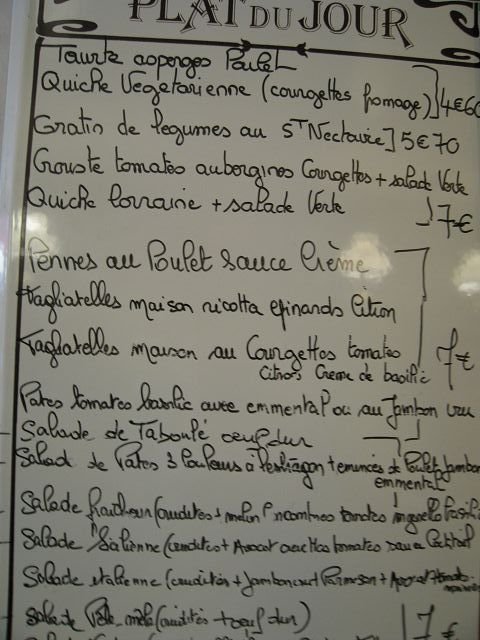 PLAT DU JOUR
Tourte asperges Poulet
Quiche Vegetarienne (courgettes fromage)] 4€60
Gratin de legumes au ST Nectaire] 5€70
Crouste tomates aubergines Courgettes + salade Verte
Quiche Lorraine + salade Verte
7€
Pennes au Poulet sauce Crème
Tagliatelles maison ricotta epinards Citron
Tagliatelles maison au Courgettes tomates
7€
Citrons Creme de basilic
Pates tomates basilic avec emmental ou au Jambon cru
Salade de Taboulé oeuf dur
Salad de Pates 3 Couleurs a l'estragon + emincés de Poulet Jambon
emmental
Salade fraicheur (crudites + melon concombres tomates
Salade (crudites + Avocat tomates sauce Cocktail
Salade italienne (crudités + Jambon cru Parmesan + tomates
Salade Pêle-mêle (crudités + oeuf dur)
7€